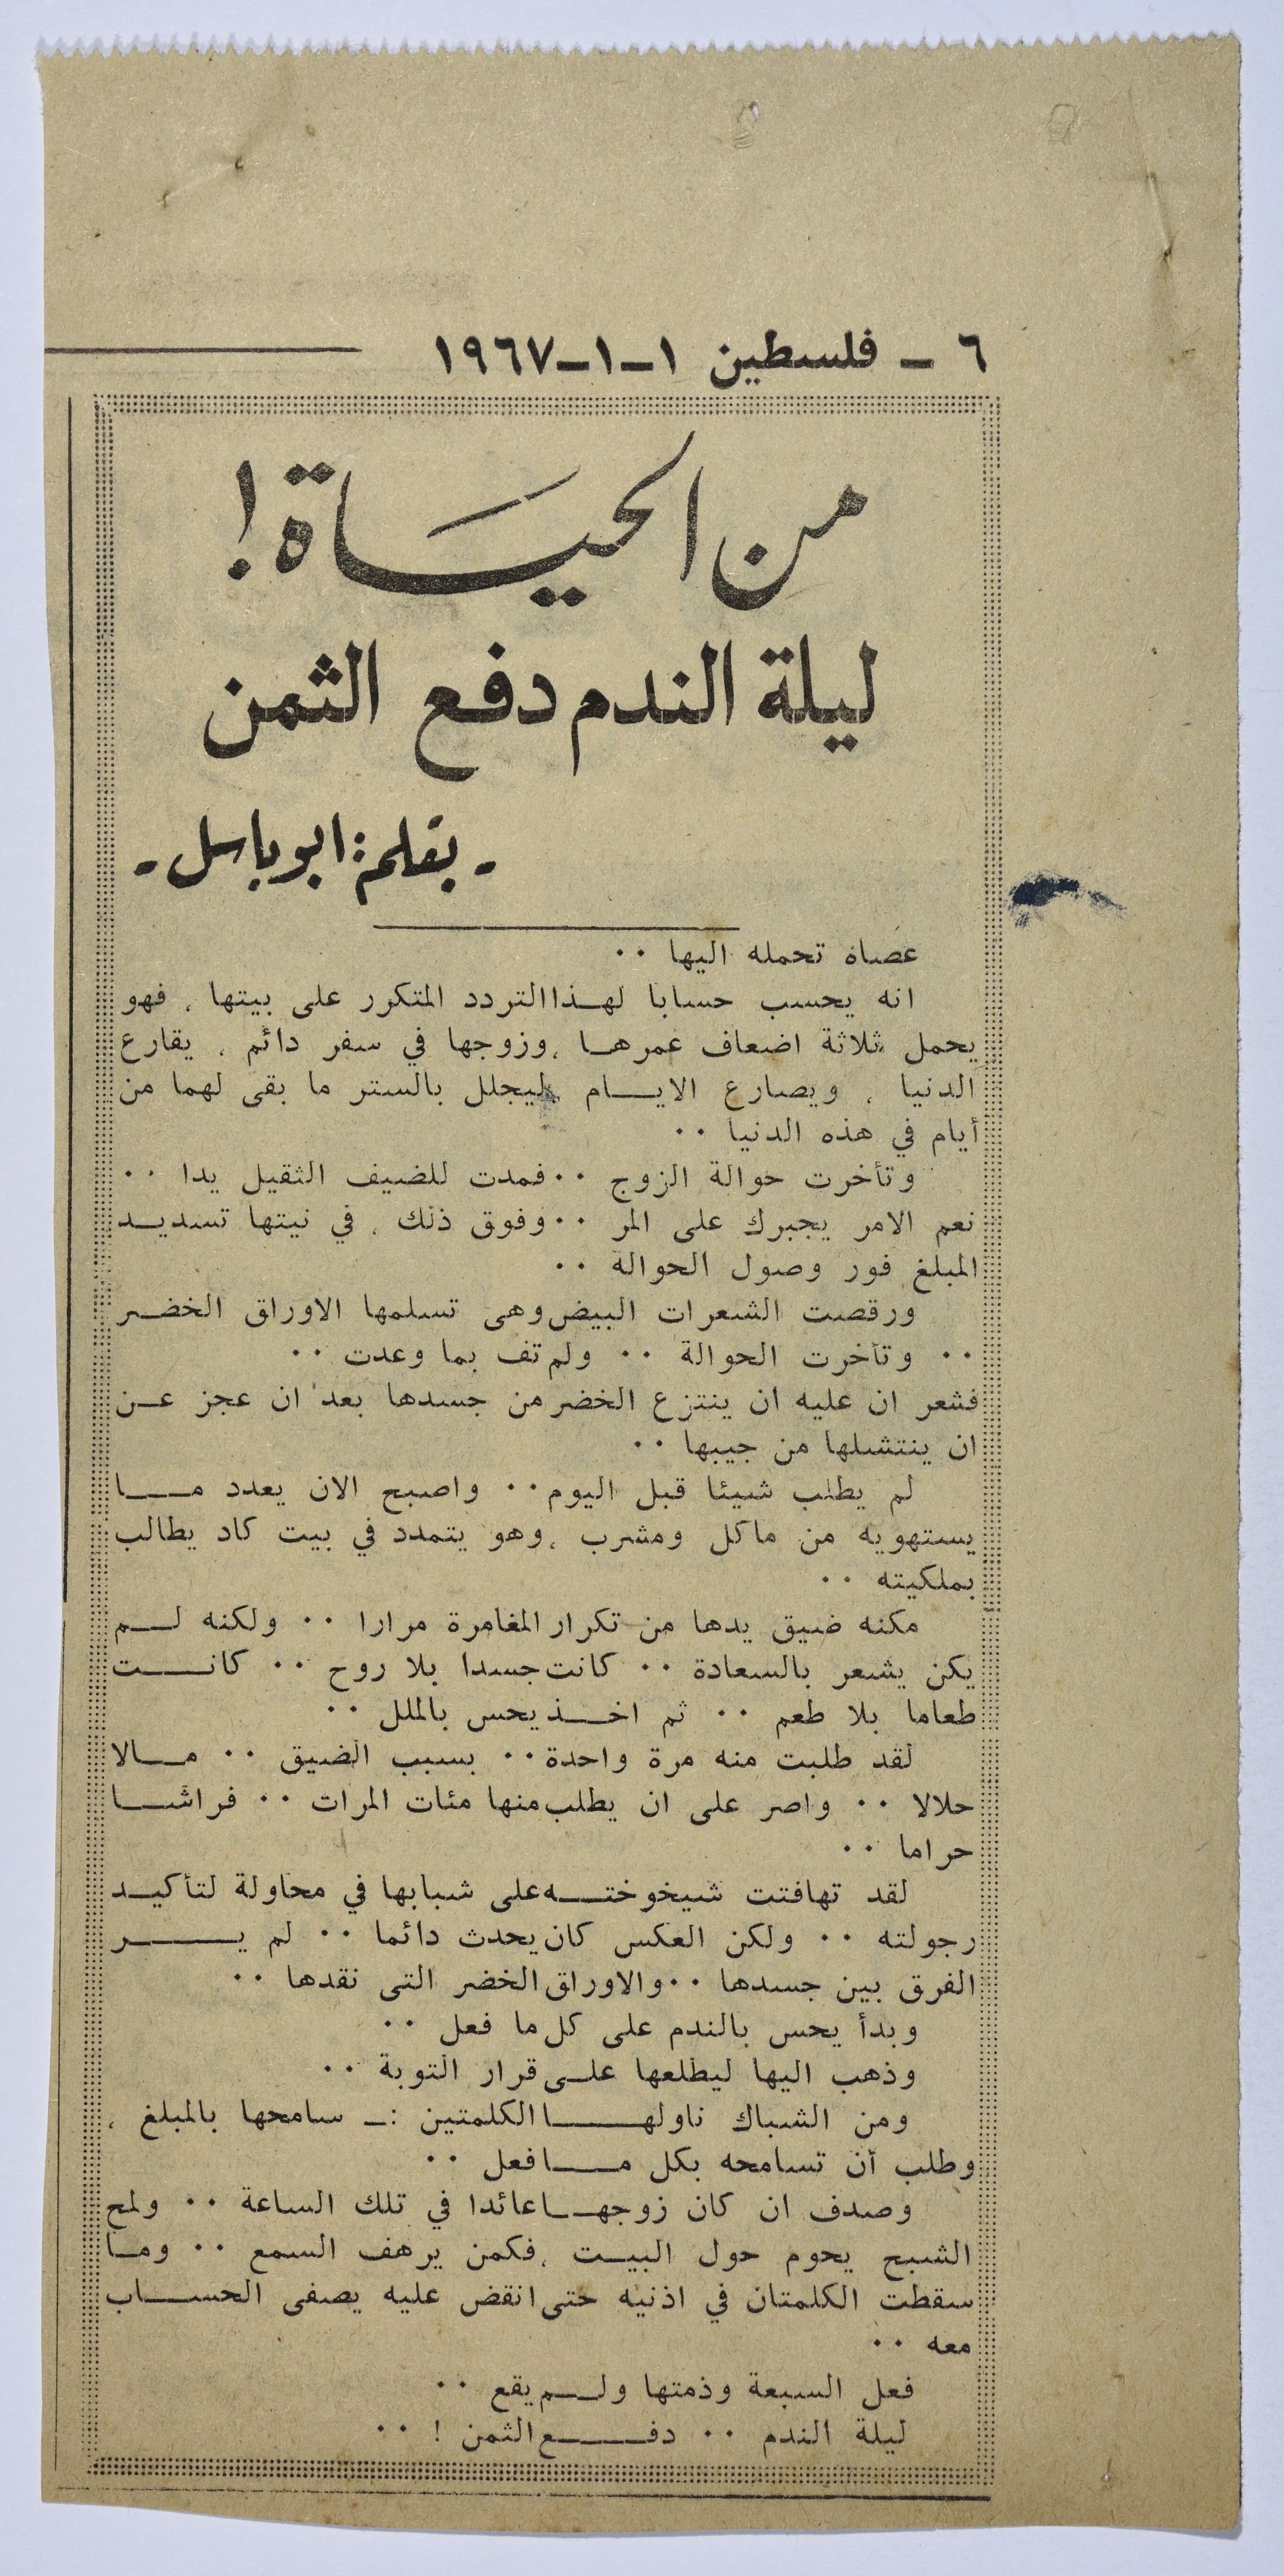 ٦ ــ فلسطين ١ــ١ــ١٩٦٧
من الحياة !
ليلة الندم دفع الثمن
- بقلم : ابو باسل -
عصاه تحمله اليها ٠٠
انه يحسب حسابا لهـذا التردد المتكرر على بيتها ، فهو
يحمل ثلاثة اضعاف عمرهـا ، وزوجها في سفر دائم ، يقارع
الدنيا ، ويصارع الايــام ليجلل بالستر ما بقى لهما من
أيام في هذه الدنيا ٠٠
وتأخرت حوالة الزوج ٠٠ فمدت للضيف الثقيل يدا ٠٠
نعم الامر يجبرك على المر ٠٠ وفوق ذلك ، في نيتها تسديـد
المبلغ فور وصول الحوالة ٠٠
ورقصت الشعرات البيض وهى تسلمها الاوراق الخضـر
٠٠ وتأخرت الحوالة ٠٠ ولم تف بما وعدت ٠٠
فشعر ان عليه ان ينتزع الخضر من جسدها بعد ان عجز عـن
ان ينتشلها من جيبها ٠٠
لم يطلب شيئا قبل اليوم ٠٠ واصبح الان يعدد مـــا
يستهويه من ماكل ومشرب ، وهو يتمدد في بيت كاد يطالب
بملكيته ٠٠
مكنه ضيق يدها من تكرار المغامرة مرارا ٠٠ ولكنه لــم
يكن يشعر بالسعادة ٠٠ كانت جسدا بلا روح ٠٠ كانـــت
طعاما بلا طعم ٠٠ ثم اخــذ يحس بالملل ٠٠
لقد طلبت منه مرة واحدة ٠٠ بسبب الضيق ٠٠ مــالا
حلالا ٠٠ واصر على ان يطلب منها مئات المرات ٠٠ فراشـــا
حراما ٠٠
لقد تهافتت شيخوختـــه على شبابها في محاولة لتأكيــد
رجولته ٠٠ ولكن العكس كان يحدث دائما ٠٠ لم يــــــر
الفرق بين جسدها ٠٠ والاوراق الخضر التى نقدها ٠٠
وبدأ يحس بالندم على كل ما فعل ٠٠
وذهب اليها ليطلعها علــى قرار التوبة ٠٠
ومن الشباك ناولهــــا الكلمتين :ــ سامحها بالمبلغ ،
وطلب أن تسامحه بكل مـــا فعل ٠٠
وصدف ان كان زوجهــا عائدا في تلك الساعة ٠٠ ولمح
الشبح يحوم حول البيــت ، فكمن يرهف السمع ٠٠ ومــا
سقطت الكلمتان في اذنيه حتى انقض عليه يصفى الحســـاب
معه ٠٠
فعل السبعة وذمتها ولــم يقع ٠٠
ليلة الندم ٠٠ دفــــع الثمن ! ٠٠